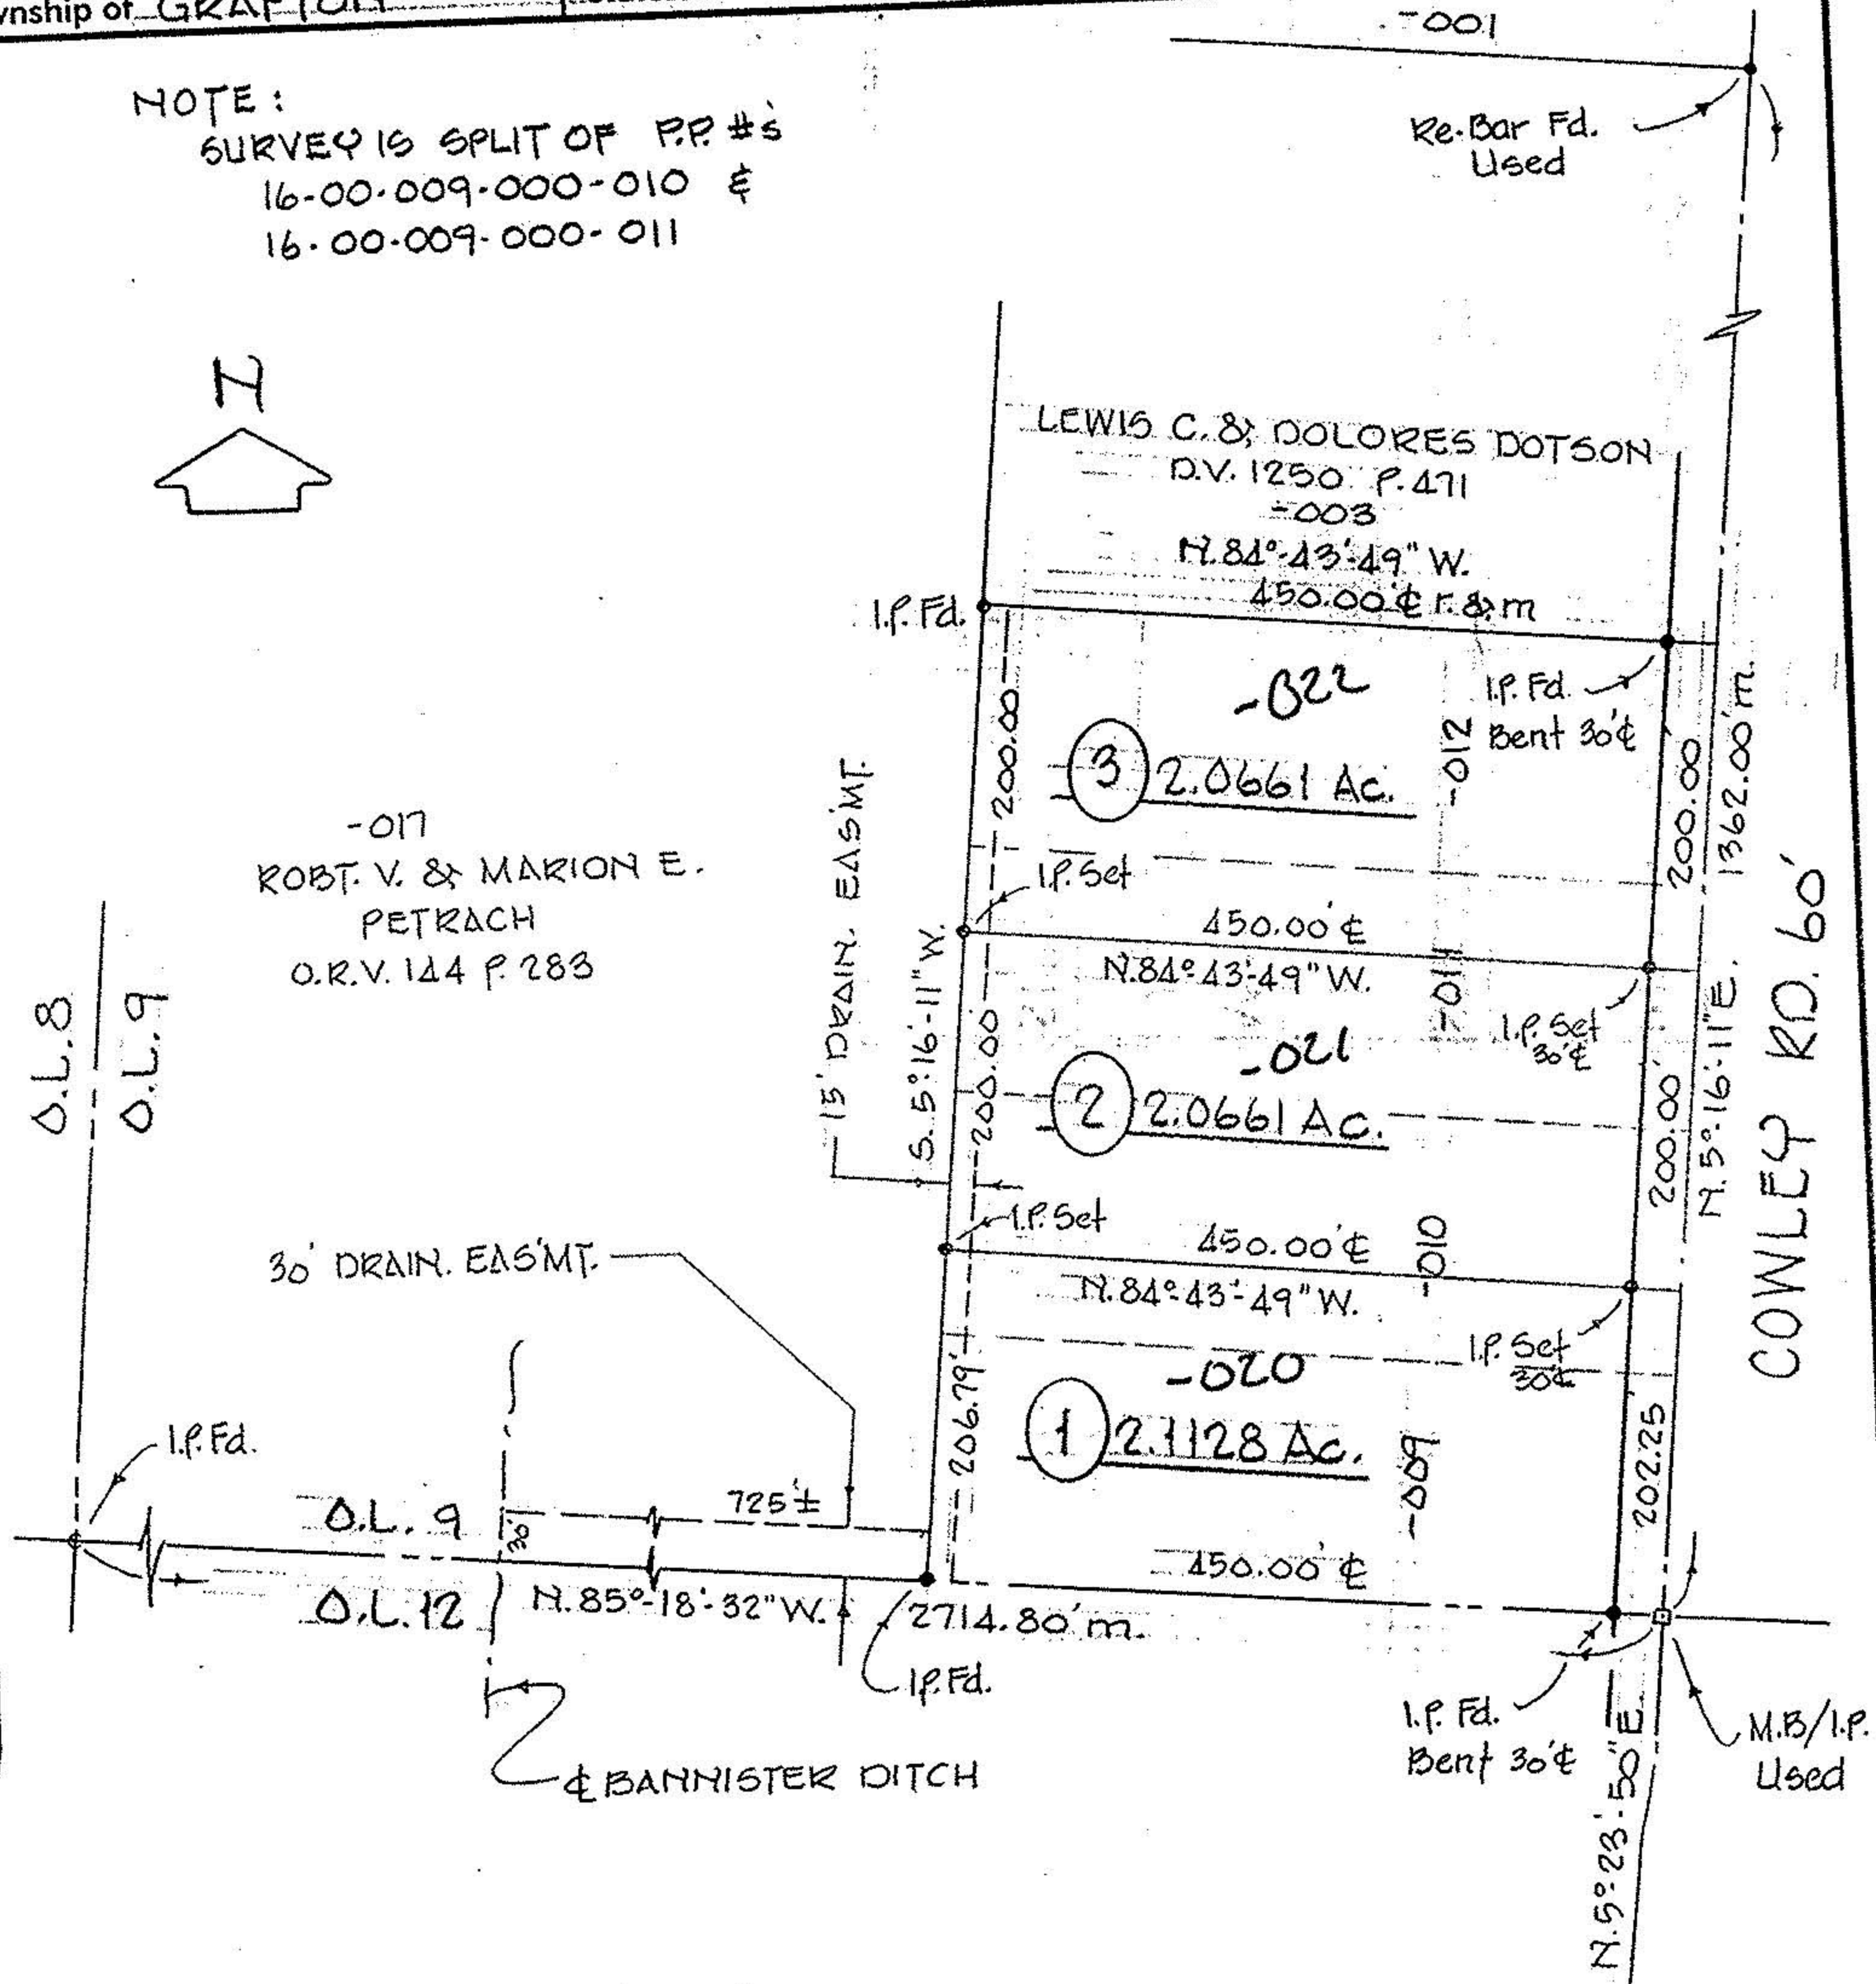 Township of GRAFTON
-001
NOTE :
SURVEY IS SPLIT OF P.P. #'s
16-00-009-000-010 &
16-00-009-000-011
Re-Bar Fd.
Used
N
LEWIS C. & DOLORES DOTSON
D.V. 1250 P. 471
-003
N.84°-43'-49" W.
450.00' ℄ r. & m
I.P. Fd.
-022
I.P. Fd.
Bent 30'℄
-012
3 2.0661 Ac.
200.00
200.00
1362.00' m.
15' DRAIN. EAS'MT.
-017
ROBT. V. & MARION E.
PETRACH
O.R.V. 144 P. 283
I.P. Set
450.00' ℄
N.84°-43'-49" W.
-011
I.P. Set
30'℄
S. 5°-16'-11" W.
200.00
-021
2 2.0661 Ac.
200.00'
N. 5°-16'-11" E.
COWLEY RD. 60'
O.L. 8
O.L. 9
I.P. Set
450.00' ℄
N.84°-43'-49" W.
-010
I.P. Set
30'℄
30' DRAIN. EAS'MT.
206.79'
-020
1 2.1128 Ac.
-009
202.25'
I.P. Fd.
O.L. 9
30'
725'±
450.00' ℄
O.L. 12
N. 85°-18'-32" W.
2714.80' m.
I.P. Fd.
I.P. Fd.
Bent 30'℄
M.B/I.P.
Used
℄ BANNISTER DITCH
N. 5°-23'-50" E.